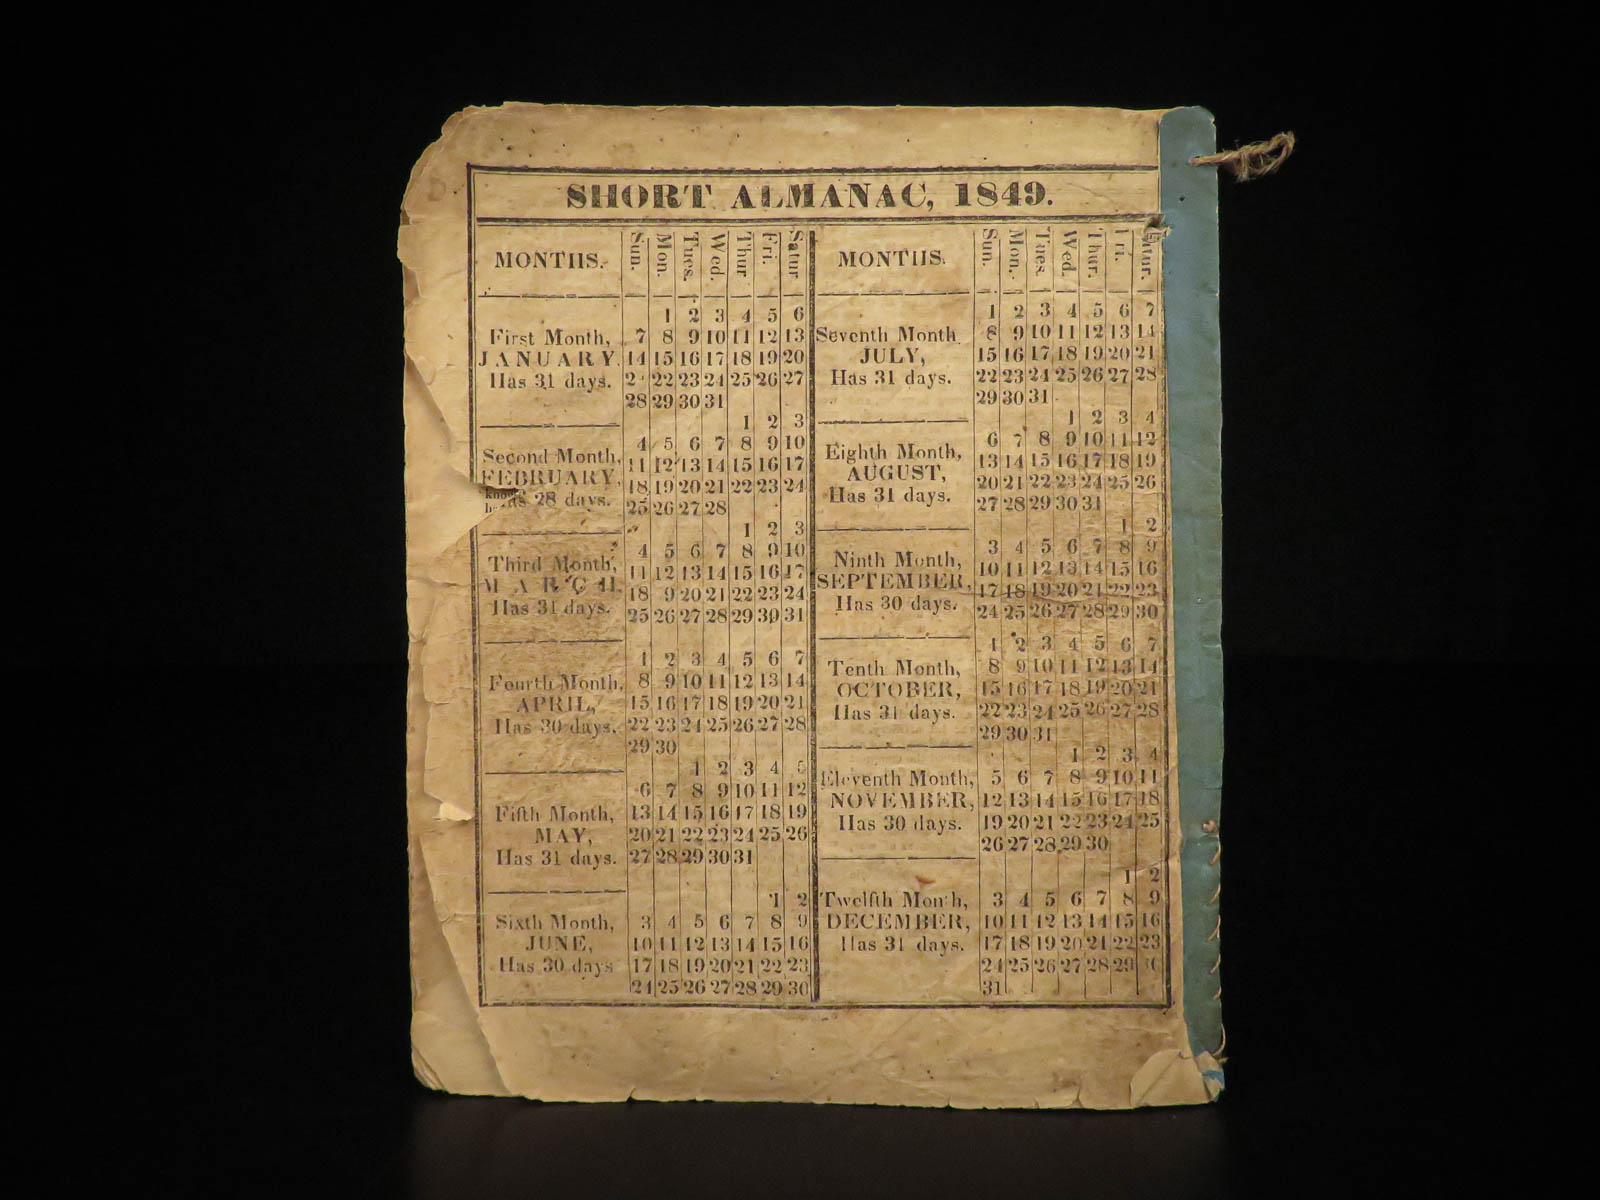 SHORT ALMANAC, 1849.
MONTHS. Sun. Mon. Tues. Wed. Thur. Fri. Satur
First Month,
JANUARY.
Has 31 days.
1 2 3 4 5 6
7 8 9 10 11 12 13
14 15 16 17 18 19 20
2 22 23 24 25 26 27
28 29 30 31
Second Month,
FEBRUARY,
has 28 days.
1 2 3
4 5 6 7 8 9 10
11 12 13 14 15 16 17
18 19 20 21 22 23 24
25 26 27 28
Third Month,
MARCH,
Has 31 days.
1 2 3
4 5 6 7 8 9 10
11 12 13 14 15 16 17
18 9 20 21 22 23 24
25 26 27 28 29 30 31
Fourth Month,
APRIL,
Has 30 days.
1 2 3 4 5 6 7
8 9 10 11 12 13 14
15 16 17 18 19 20 21
22 23 24 25 26 27 28
29 30
Fifth Month,
MAY,
Has 31 days.
1 2 3 4 5
6 7 8 9 10 11 12
13 14 15 16 17 18 19
20 21 22 23 24 25 26
27 28 29 30 31
Sixth Month,
JUNE,
Has 30 days
1 2
3 4 5 6 7 8 9
10 11 12 13 14 15 16
17 18 19 20 21 22 23
24 25 26 27 28 29 30
MONTHS. Sun. Mon. Tues. Wed. Thur. Fri. Satur.
Seventh Month.
JULY,
Has 31 days.
1 2 3 4 5 6 7
8 9 10 11 12 13 14
15 16 17 18 19 20 21
22 23 24 25 26 27 28
29 30 31
Eighth Month,
AUGUST,
Has 31 days.
1 2 3 4
6 7 8 9 10 11 12
13 14 15 16 17 18 19
20 21 22 23 24 25 26
27 28 29 30 31
Ninth Month,
SEPTEMBER,
Has 30 days.
1 2
3 4 5 6 7 8 9
10 11 12 13 14 15 16
17 18 19 20 21 22 23
24 25 26 27 28 29 30
Tenth Month,
OCTOBER,
Has 31 days.
1 2 3 4 5 6 7
8 9 10 11 12 13 14
15 16 17 18 19 20 21
22 23 24 25 26 27 28
29 30 31
Eleventh Month,
NOVEMBER,
Has 30 days.
1 2 3 4
5 6 7 8 9 10 11
12 13 14 15 16 17 18
19 20 21 22 23 24 25
26 27 28 29 30
Twelfth Month,
DECEMBER,
Has 31 days.
1 2
3 4 5 6 7 8 9
10 11 12 13 14 15 16
17 18 19 20 21 22 23
24 25 26 27 28 29 30
31